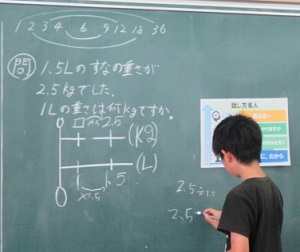 1 2 3 4 6 9 12 18 36
問 1.5Lのすなの重さが
2.5kgでした。
1Lの重さは何kgですか。
0 □ 2.5 (kg)
0 1 1.5 (L)
×1.5
2.5÷1.5
2.5
話し方名人